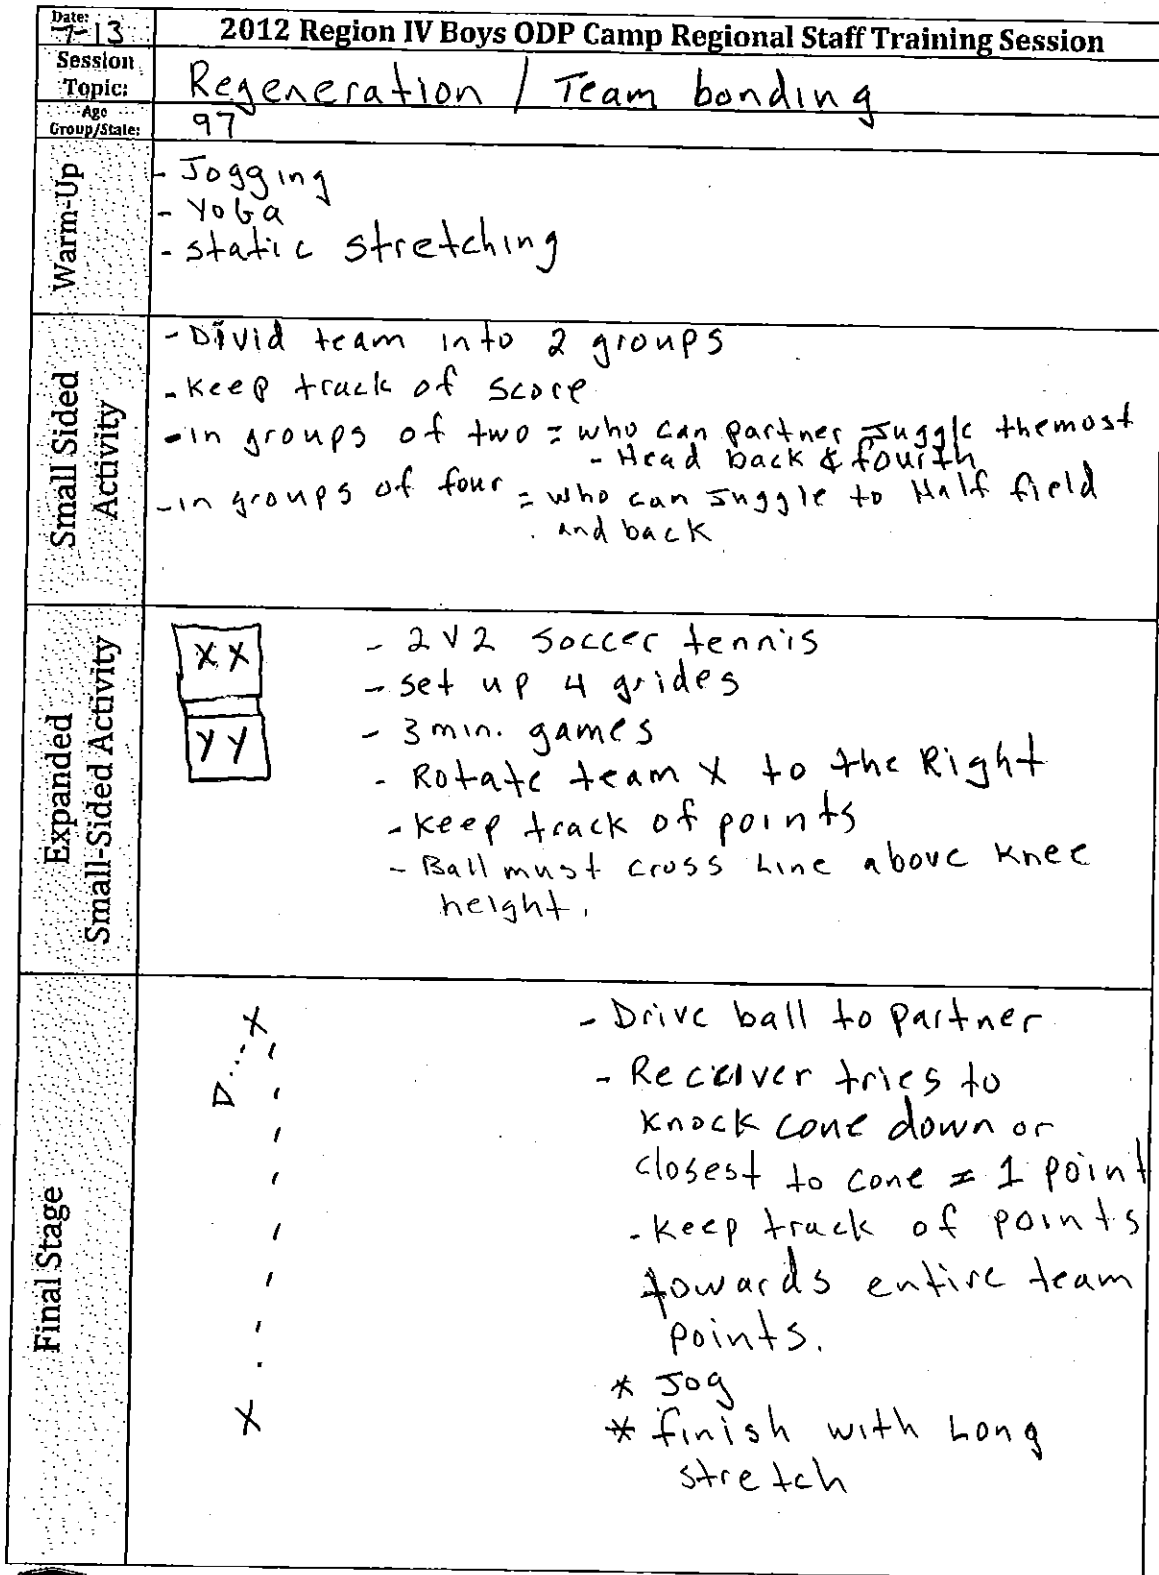 Date: 7-13
2012 Region IV Boys ODP Camp Regional Staff Training Session
Session Topic:
Regeneration / Team bonding
Age Group/State:
97
Warm-Up
- Jogging
- Yoga
- static stretching
Small Sided Activity
- Divid team into 2 groups
- Keep track of score
- in groups of two = who can partner Juggle the most
- Head back & fourth
- in groups of four = who can Juggle to Half field
and back
Expanded Small-Sided Activity
X X
Y Y
- 2V2 soccer tennis
- set up 4 grides
- 3 min. games
- Rotate team X to the Right
- Keep track of points
- Ball must cross Line above Knee
height.
Final Stage
X
D
X
- Drive ball to partner
- Receiver tries to
Knock cone down or
closest to cone = 1 point
- Keep track of points
towards entire team
points.
* Jog
* finish with Long
stretch